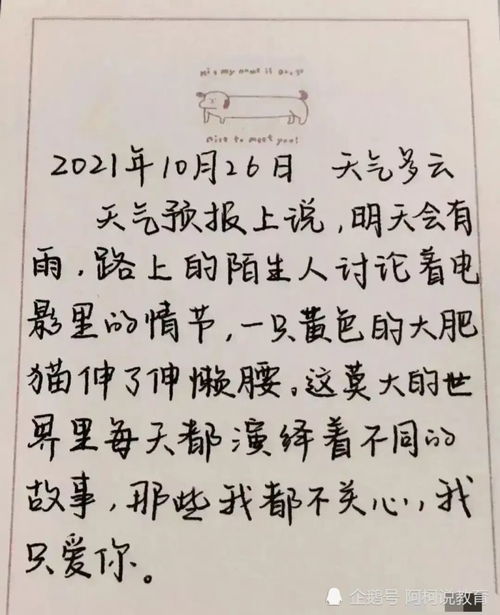 Hi , my name is Doogo
nice to meet you!
2021年10月26日 天气多云
天气预报上说,明天会有
雨,路上的陌生人讨论着电
影里的情节,一只黄色的大肥
猫伸了伸懒腰。这莫大的世
界里每天都演绎着不同的
故事,那些我都不关心,我
只爱你。
企鹅号 阿柯说教育